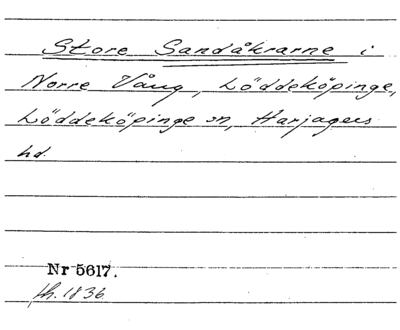 Store Sandåkrarne i
Norre Vång, Löddeköpinge,
Löddeköpinge sn, Harjagers
hd.
Nr 5617.
fh. 1836